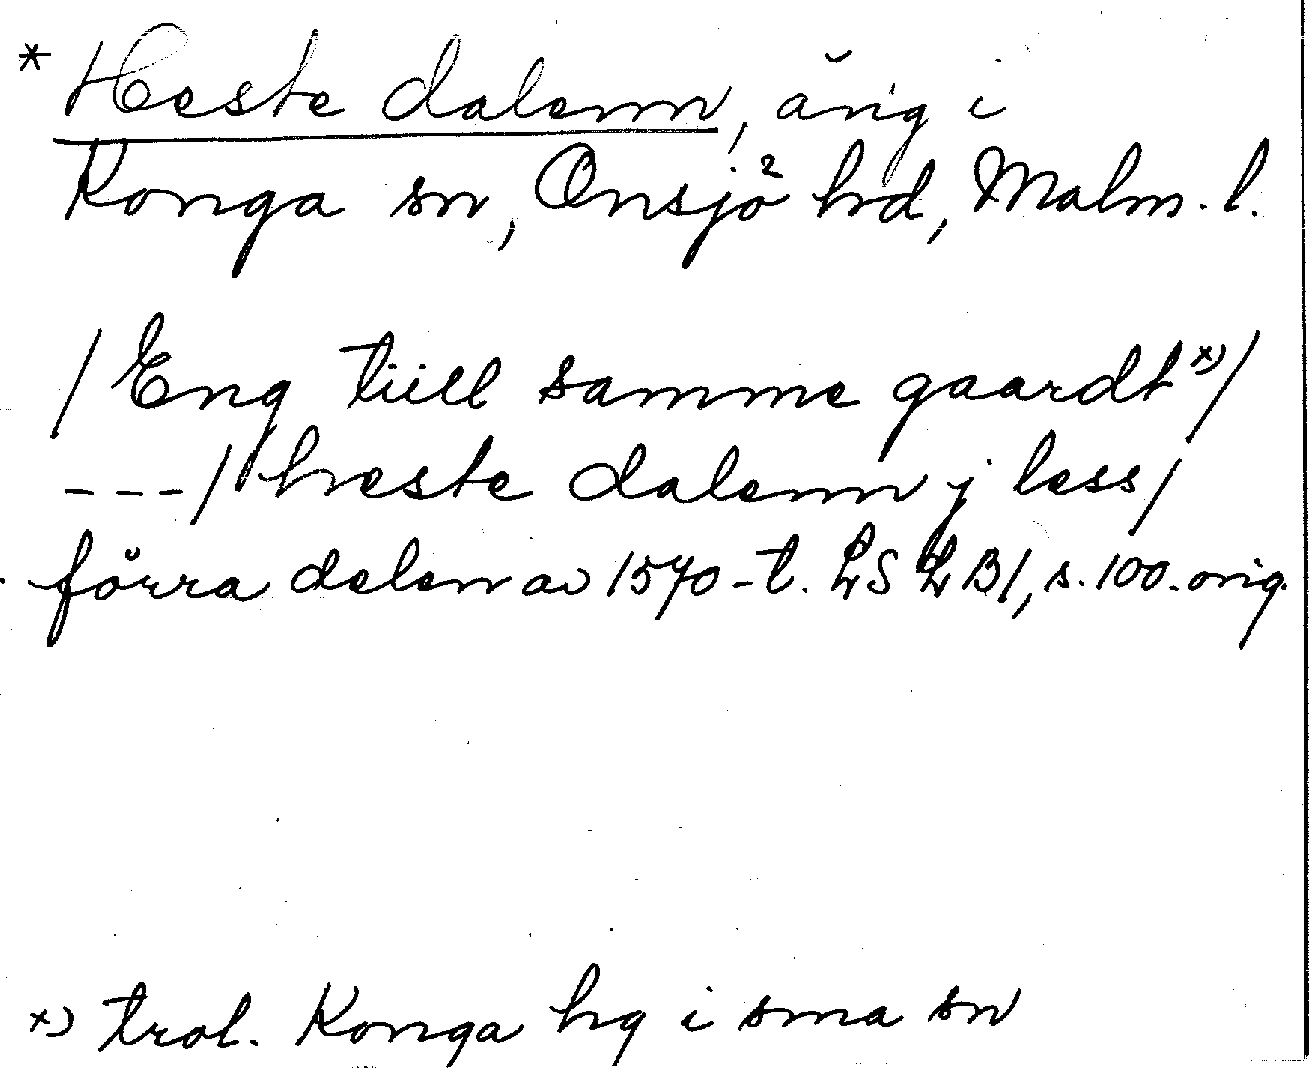 * Heste dalenn, äng i
Konga sn, Onsjö hd, Malm. l.
/Eng tiill samme gaardt x)/
---/ heste dalenn j less/
förra delen av 1570-t. LSLB1, s. 100. orig.
x) trol. Konga hg i sma sn